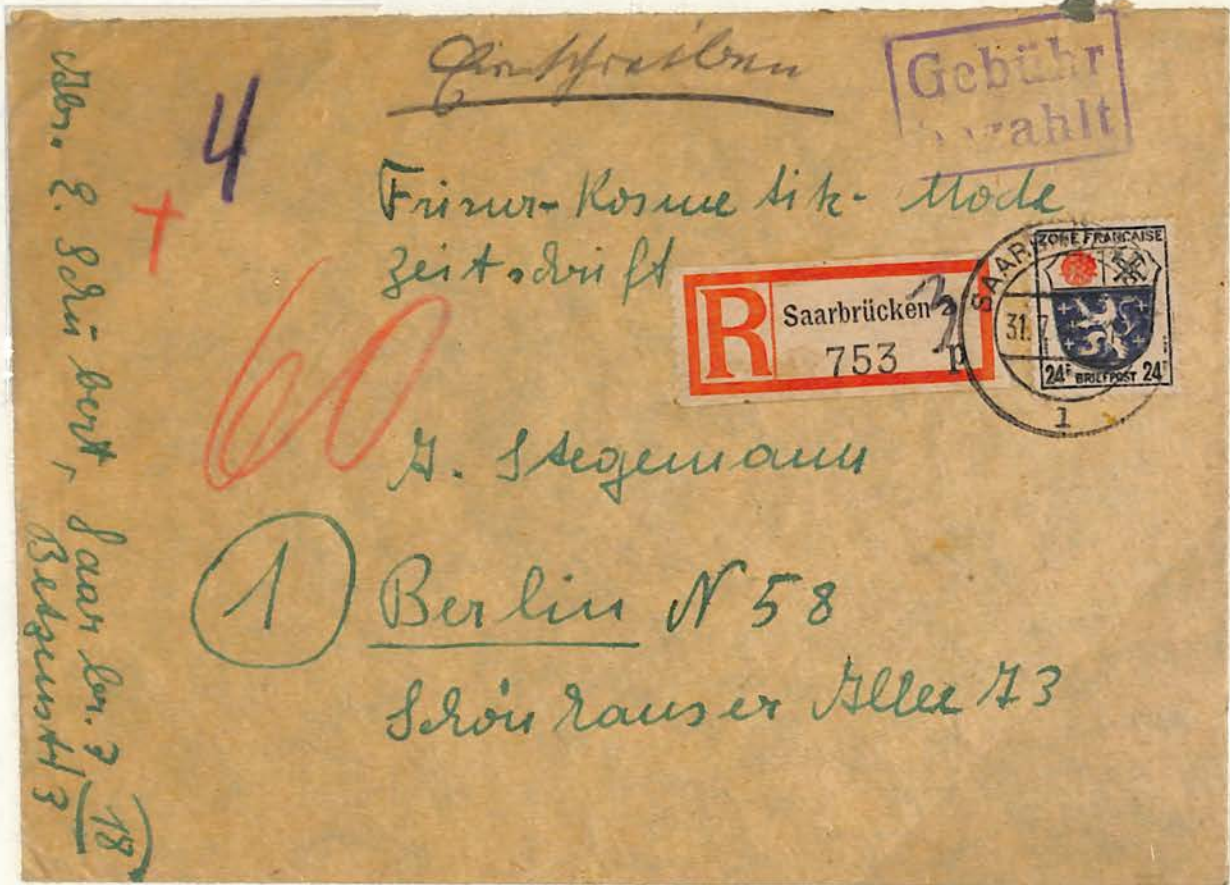 Einschreiben
Gebühr
bezahlt
4
+
Frisur-Kosmetik-Mode
Zeitschrift
R
Saarbrücken 2
3
753 p
60
SAARBRÜCKEN
31. 7
1
ZONE FRANÇAISE
24F BRIEFPOST 24F
J. Stegemann
1 Berlin N 58
Schönhauser Allee 73
Abs. E. Schubert, Saarbr. 3
18